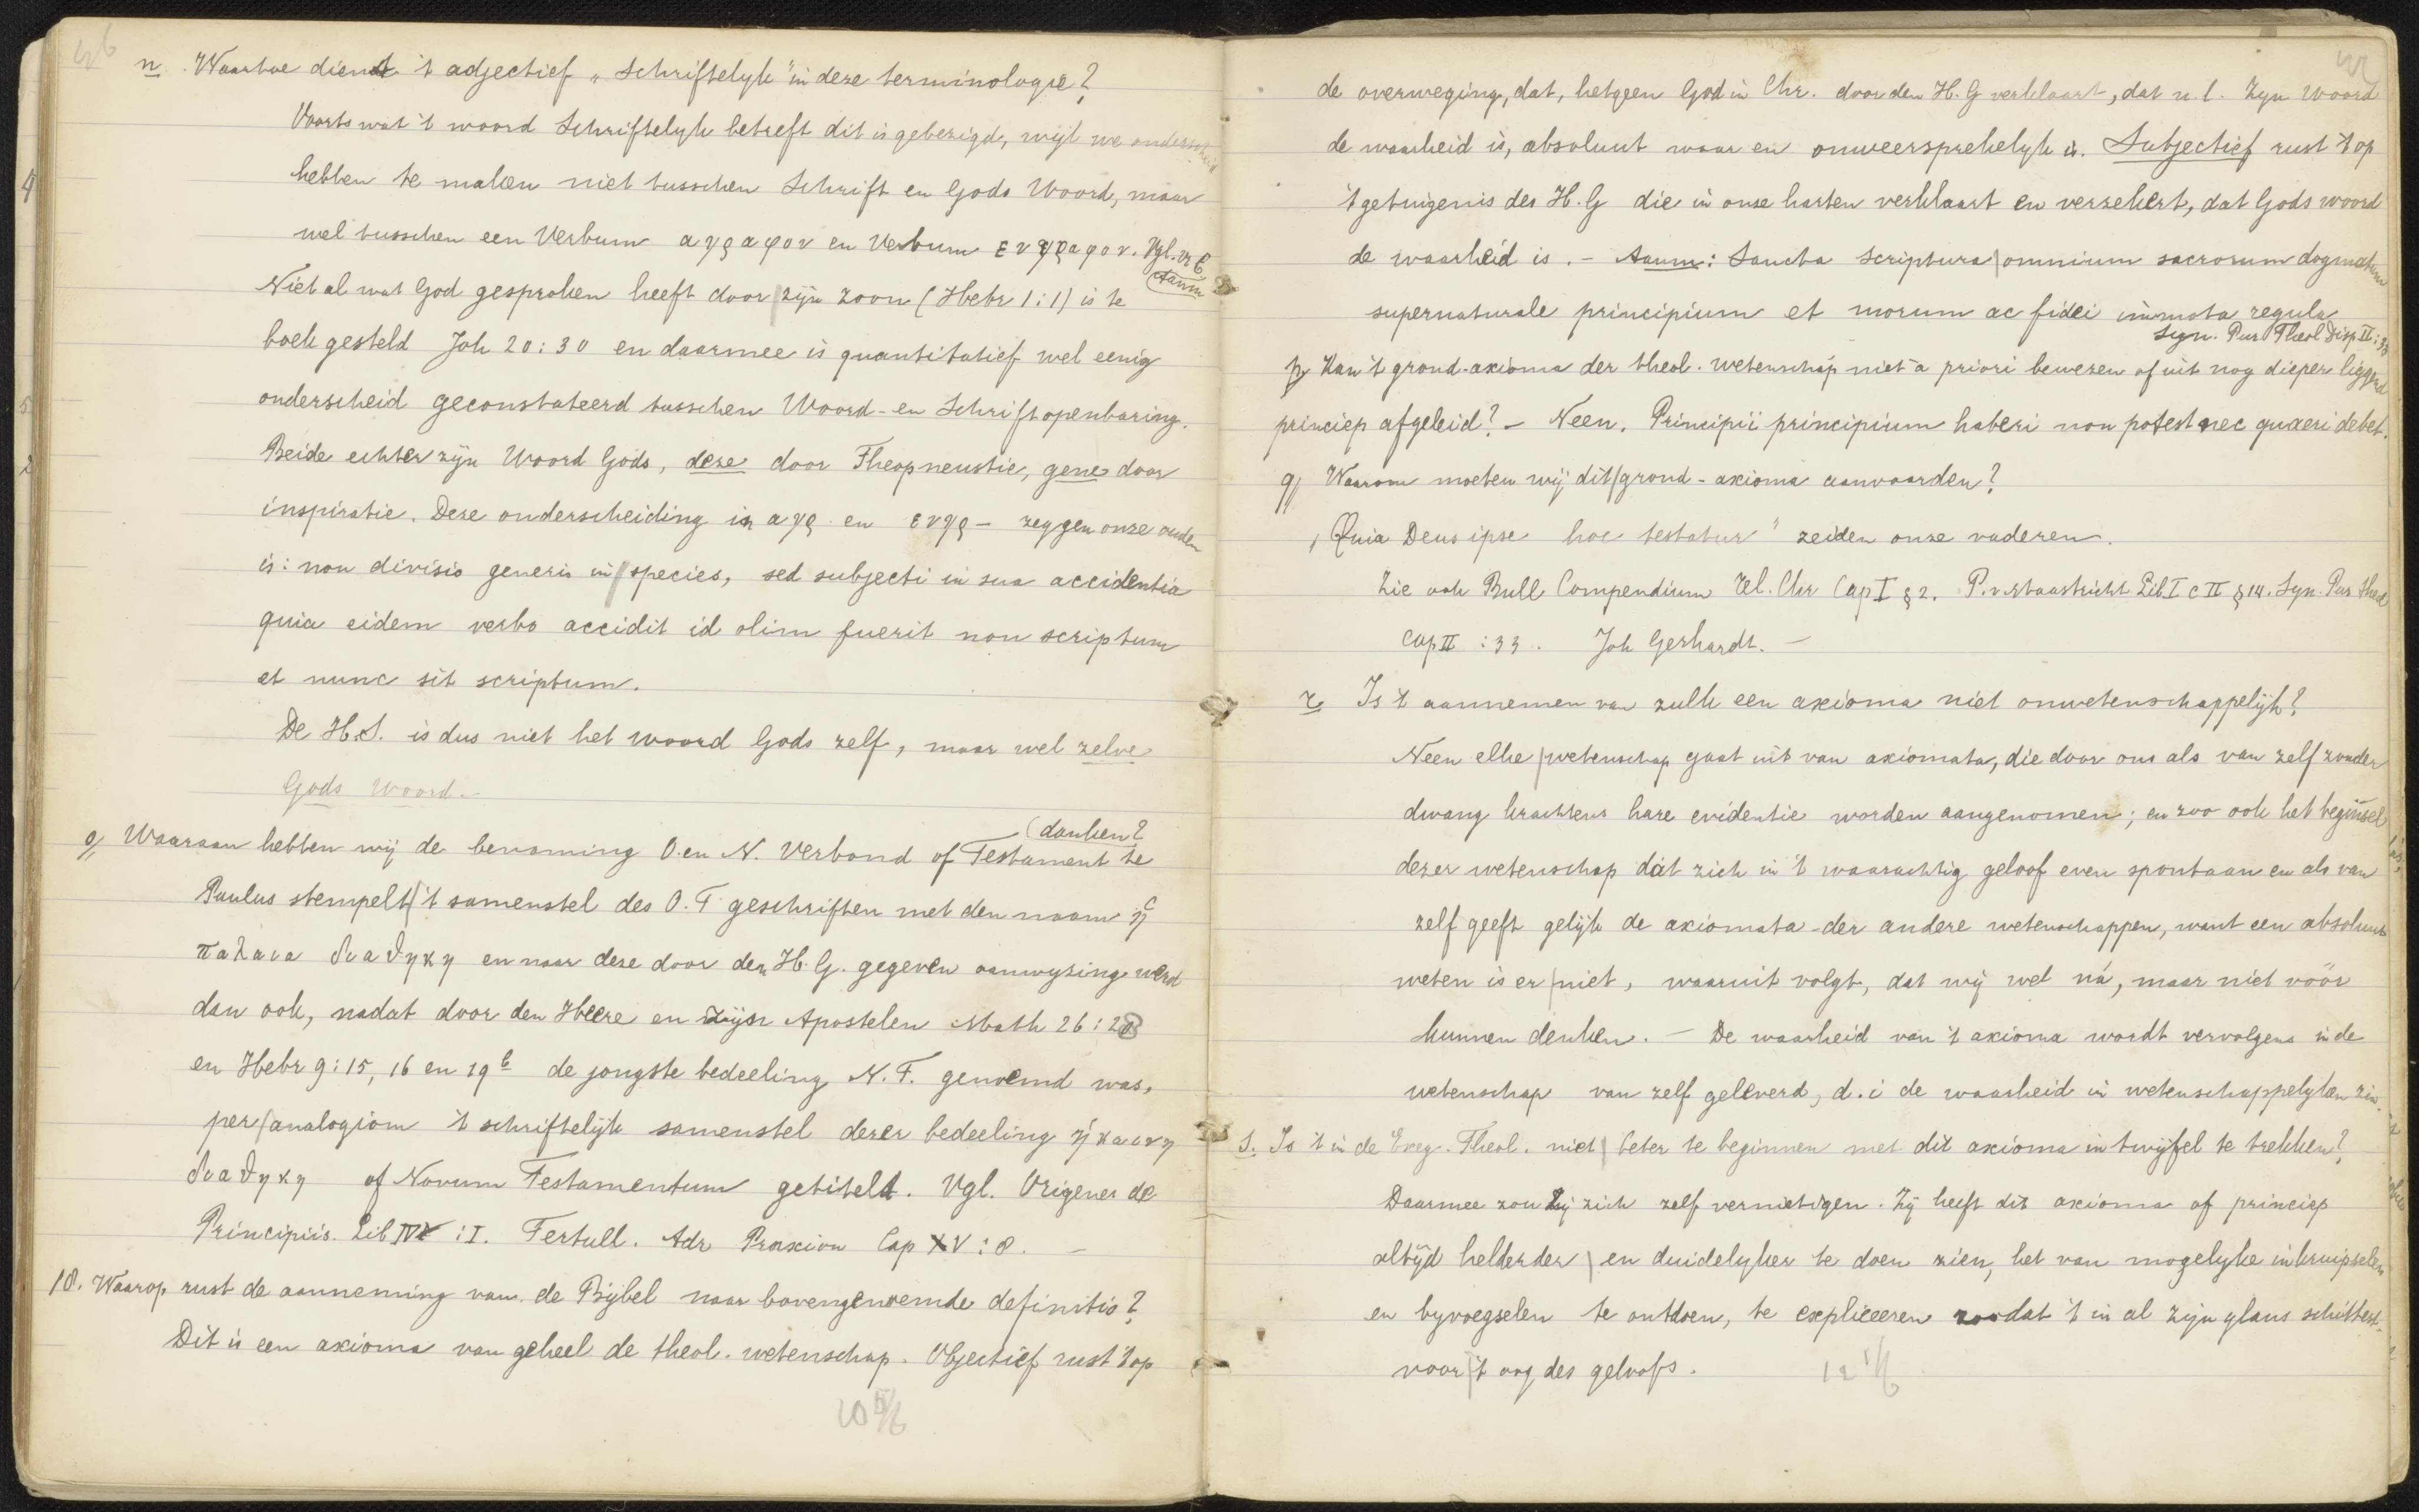 n. Waartoe dient 't adjectief „Schriftelyk" in deze terminologie?
Voorts wat 't woord Schriftelyk betreft dit is gebezigd, wijl we onderscheid
hebben te maken niet tusschen Schrift en Gods Woord, maar
wel tusschen een Verbum αγραφον en Verbum ενγραφον. Vgl. vr 6
Aanm
Niet al wat God gesproken heeft door zijn zoon (Hebr 1:1) is te
boek gesteld Joh 20:30 en daarmee is quantitatief wel eenig
onderscheid geconstateerd tusschen Woord- en Schriftopenbaring.
Beide echter zijn Woord Gods, deze door Theopneustie, gene door
inspiratie. Deze onderscheiding in αγρ. en ενγρ – zeggen onze ouden
is: non divisio generis in species, sed subjecti in sua accidentia
quia eidem verbo accidit id olim fuerit non scriptum
et nunc sit scriptum.
De H.S. is dus niet het woord Gods zelf, maar wel zelve
Gods Woord.–
o/ Waaraan hebben wij de benaming O. en N. Verbond of Testament te
(danken?
Paulus stempelt 't samenstel des O.T geschriften met den naam ἡ
παλαια διαθηκη en naar deze door den H.G. gegeven aanwyzing werd
dan ook, nadat door den Heere en zijn Apostelen Math 26:28
en Hebr 9:15, 16 en 19b de jongste bedeeling N.T. genoemd was,
per analogiam 't schriftelijk samenstel dezer bedeeling ἡ καινη
διαθηκη of Novum Testamentum getiteld. Vgl. Origenes de
Principiis. Lib IV :I. Tertull. Adr Praxian Cap XV:8. –
18. Waarop rust de aanneming van de Bijbel naar bovengenoemde definitio?
Dit is een axioma van geheel de theol. wetenschap. Objectief rust 't op
10 5/6
de overweging, dat, hetgeen God in Chr. door den H.G verklaart, dat n.l. Zyn Woord
de waarheid is, absoluut waar en onweersprekelyk is. Subjectief rust 't op
't getuigenis des H.G die in onze harten verklaart en verzekert, dat Gods woord
de waarheid is.– Aanm: Sancta Scriptura omnium sacrorum dogmatum
supernaturale principium et morum ac fidei immota regula
Syn. Pur Theol Disp II:33
p/ Kan 't grond-axioma der theol. wetenschap niet a priori bewezen of uit nog dieper liggend
princiep afgeleid? – Neen. Principii principium haberi non potest nec quaeri debet.
q/ Waarom moeten wij dit grond-axioma aanvaarden?
„Quia Deus ipse hoc testatur" zeiden onze vaderen.
Zie ook Bull Compendium Rel. Chr Cap I § 2. P. v Maastricht Lib. I c II § 14. Syn. Pur theol
Cap II :33. Joh Gerhardt. –
r. Is 't aannemen van zulk een axioma niet onwetenschappelijk?
Neen elke wetenschap gaat uit van axiomata, die door ons als van zelf zonder
dwang krachtens hare evidentie worden aangenomen; en zoo ook het beginsel
dezer wetenschap dat zich in 't waarachtig geloof even spontaan en als van
zelf geeft gelijk de axiomata der andere wetenschappen, want een absoluut
weten is er niet, waaruit volgt, dat wij wel ná, maar niet vóór
kunnen denken. – De waarheid van 't axioma wordt vervolgens in de
wetenschap van zelf geleverd, d.i de waarheid in wetenschappelyken zin.
s. Is 't in de Exeg. Theol. niet beter te beginnen met dit axioma in twyfel te trekken?
Daarmee zou zij zich zelf vernietigen. Zij heeft dit axioma of princiep
altijd helderder en duidelyker te doen zien, het van mogelyke inkruipselen
en byvoegselen te ontdoen, te expliceeren zoodat 't in al zijn glans schittert
voor 't oog des geloofs.
12 1/6